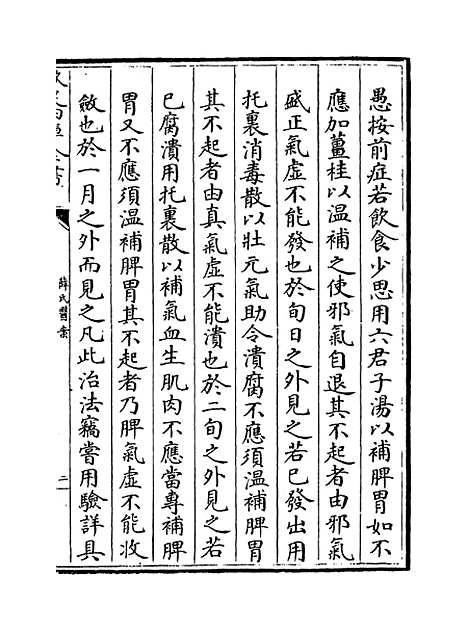 愚按前症若飲食少思用六君子湯以補脾胃如不
應加薑桂以溫補之使邪氣自退其不起者由邪氣
盛正氣虛不能發也於旬日之外見之若已發出用
托裏消毒散以壯元氣助令潰腐不應須溫補脾胃
其不起者由真氣虛不能潰也於二旬之外見之若
已腐潰用托裏散以補氣血生肌肉不應當專補脾
胃又不應須溫補脾胃其不起者乃脾氣虛不能收
斂也於一月之外而見之凡此治法竊嘗用驗詳具
薛氏醫案
二